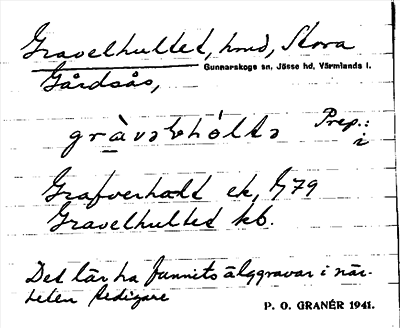 Gravelhultet, hmd, Stora
Gunnarskogs sn, Jösse hd, Värmlands l.
Gårdsås,
Prep.:
i
Grafverhaldt ek, 1779
Gravelhultet kb.
Det lär ha funnits älggravar i när-
heten tidigare
P. O. GRANÉR 1941.